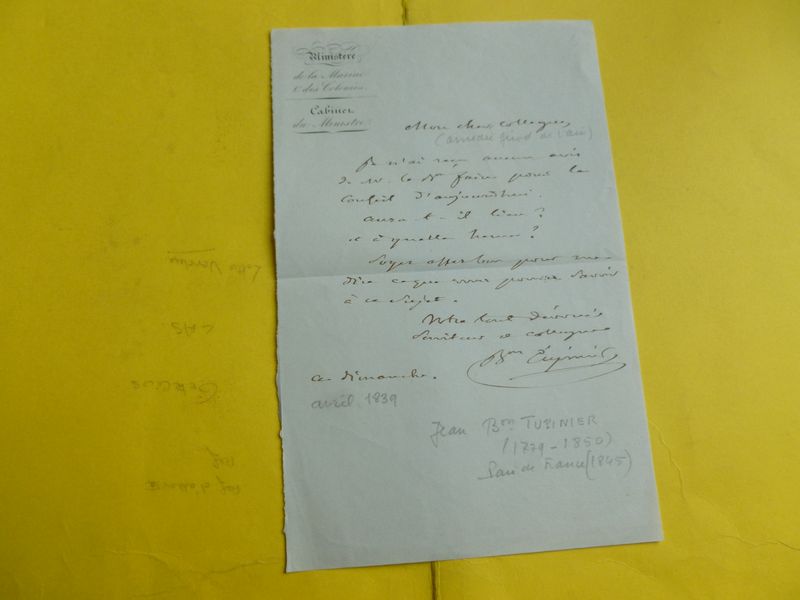 Ministère
de la Marine
& des Colonies.
Cabinet
du Ministre
Mon cher Collègue,
(amédée Girod de l'ain)
Je n'ai reçu aucun avis
de M. le Dr faire pour le
Conseil d'aujourd'hui.
aura-t-il lieu ?
et à quelle heure ?
Soyez assez bon pour me
dire ce que vous pouvez savoir
à ce sujet.
Votre tout dévoué
Serviteur et collègue
Bon Tupinier
ce dimanche.
avril 1839
Jean Bon TUPINIER
(1779-1850)
Pair de France (1845)
LAS